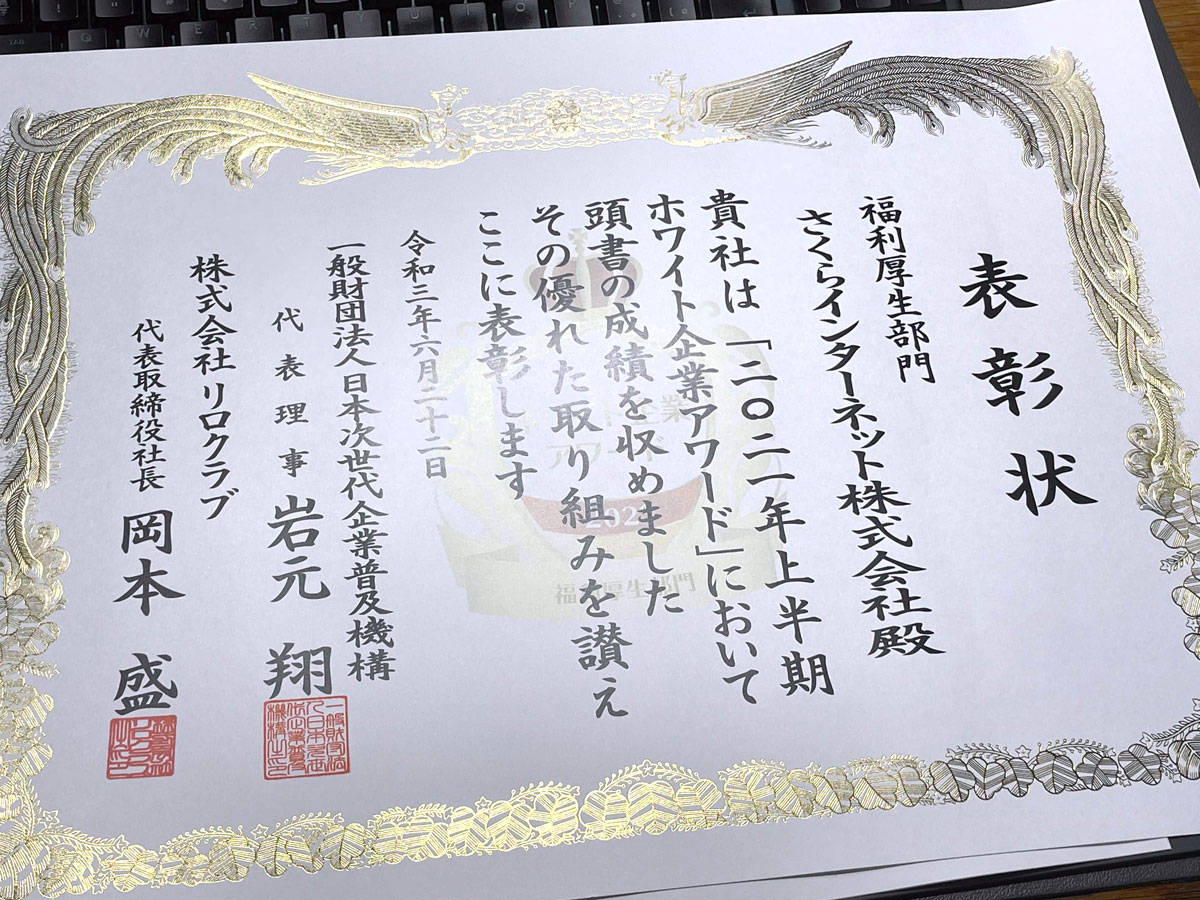 表彰状
福利厚生部門
さくらインターネット株式会社殿
貴社は「二〇二一年上半期
ホワイト企業アワード」において
頭書の成績を収めました
その優れた取り組みを讃え
ここに表彰します
令和三年六月二十二日
一般財団法人日本次世代企業普及機構
代表理事 岩元 翔
株式会社リロクラブ
代表取締役社長 岡本 盛
福利厚生部門